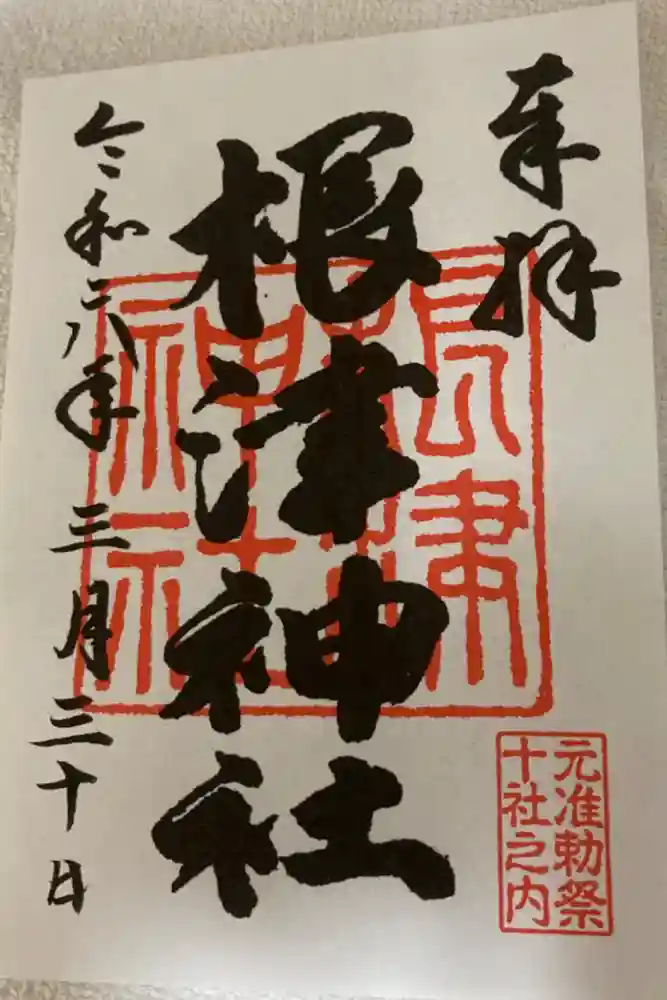 奉拝
根津神社
根津神社
元准勅祭
十社之内
令和六年三月三十日